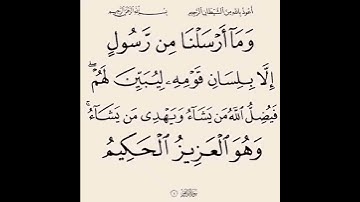 أعوذ بالله من الشيطان الرجيم بسم الله الرحمن الرحيم
وَمَآ أَرْسَلْنَا مِن رَّسُولٍ
إِلَّا بِلِسَانِ قَوْمِهِۦ لِيُبَيِّنَ لَهُمْ ۖ
فَيُضِلُّ ٱللَّهُ مَن يَشَآءُ وَيَهْدِى مَن يَشَآءُ ۚ
وَهُوَ ٱلْعَزِيزُ ٱلْحَكِيمُ